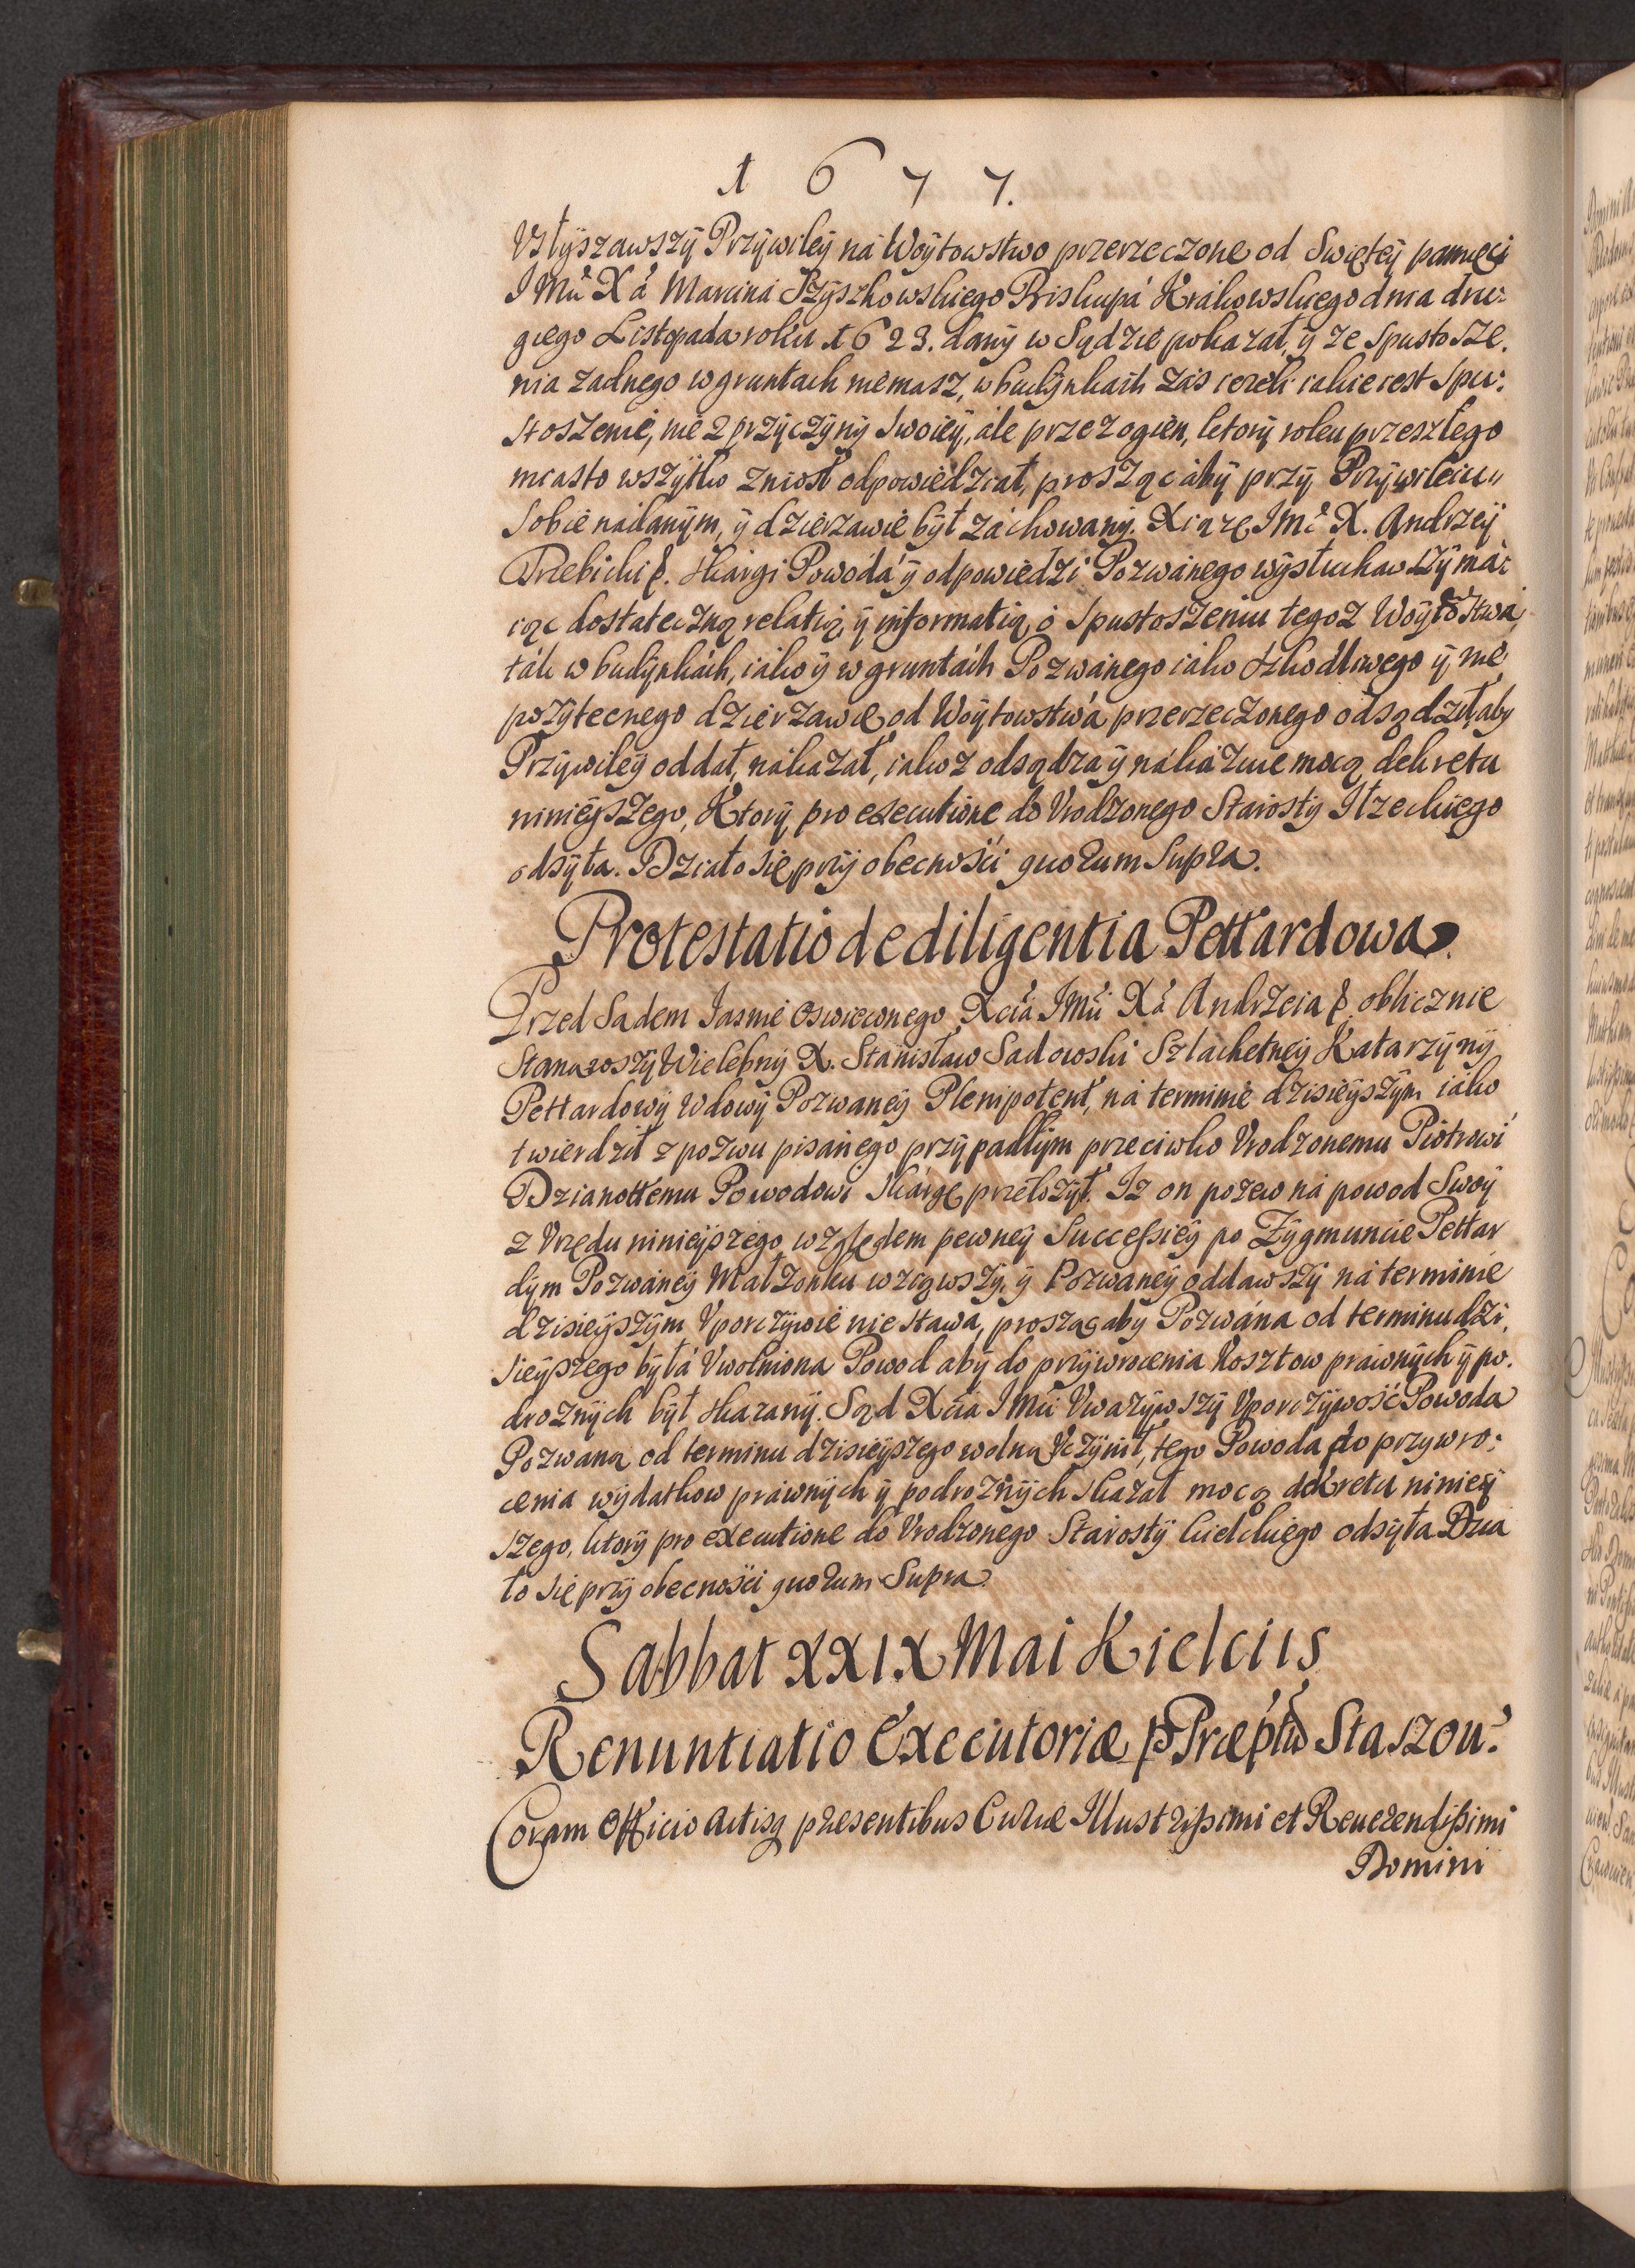 1677.
Vsłyszawszÿ Przÿwileÿ ná Woÿtowstwo przerzeczone od Swiętéÿ pamięci
IMu Xá Marcina Szÿszkowskiego Biskupá Krákowskiego dnia dru:
giego Listopada roku 1623. danÿ w Sądzie pokazał, ÿ ze Spustosze.
nia zadnego w gruntach niemasz, w budÿnkach zás iezeli iakie iest Spu:
stoszenie, nie z przÿczÿnÿ Swoieÿ, ále przez ogien, ktorÿ roku przeszłego
miasto wszÿtko zniosł odpowiedział, prosząc ábÿ przÿ Przÿwileiu
Sobie nádanÿm, ÿ dzierzawie bÿł záchowanÿ. Xiązę IMc X. Andrzeÿ
Trzebicki &. skárgi Powodá ÿ odpowiedzi Pozwánego wÿsłuchawszÿ má:
iąc dostateczną relatią, ÿ informatią, o Spustoszeniu tegoz Woÿtostwá,
ták w budÿnkách, iáko ÿ w gruntách Pozwánego iáko szkodliwego ÿ nie
pozÿtecnego dzierzawcę, od Woÿtowstwá przerzeczonego odsądził, aby
Przÿwileÿ oddał, nákazał, iakoz odsądza ÿ nákázuie mocą dekretu
ninieÿszego, Ktorÿ pro executione do Vrodzonego Stárostÿ Iłzeckiego
odsÿła. Działo się prżÿ obecnosći quorum Supra.
Protestatio de diligentia Pettardowa.
Przed Sadem Iasnie Oswieconego Xcia IMci Xá Andrzeia &. oblicznie
Stanąwszÿ Wielebnÿ X. Stánisław Sadowski Szlachetneÿ Katarzÿnÿ
Pettardowÿ Wdowÿ Pozwaneÿ Plenipotent, ná terminie dzisieÿszÿm iáko
twierdził z pozwu pisánego przÿpadłÿm przeciwko Vrodzonemu Piotrowi
Dzianottemu Powodowi skárgę przełozÿł. Iz on pozew ná powod Swoÿ
z Vrzędu ninieÿszego, względem pewneÿ Successieÿ po Zÿgmuncie Pettar
dÿm Pozwáneÿ Małzonku wziąwszÿ, ÿ Pozwaneÿ oddawszÿ ná terminie
dzisieÿszÿm Vporczÿwie nie stawa, proszac aby Pozwána od terminu dzi,
sieÿszego bÿłá Vwolniona Powod abÿ do przÿwrocenia kosztow práwnÿch ÿ po.
droznÿch bÿł skazanÿ. Sąd Xcia IMci Vwazÿwszÿ Vporczÿwość Powoda
Pozwaną od terminu dzisieÿszego wolną Vczÿnił, tego Powoda do przywro:
cenia wÿdatkow práwnÿch ÿ podroznÿch skazał mocą dekretu ninieÿ
szego, ktorÿ pro executione do Vrodzonego Stárostÿ kieleckiego odsÿła Dzia
ło się przÿ obecnosći quorum Supra.
Sabbat XXIX Mai Kielciis
Renuntiatio Executoriæ Staszou:
Coram Officio Actisq præsentibus Curiæ Illustrissimi et Reuerendissimi
Domini